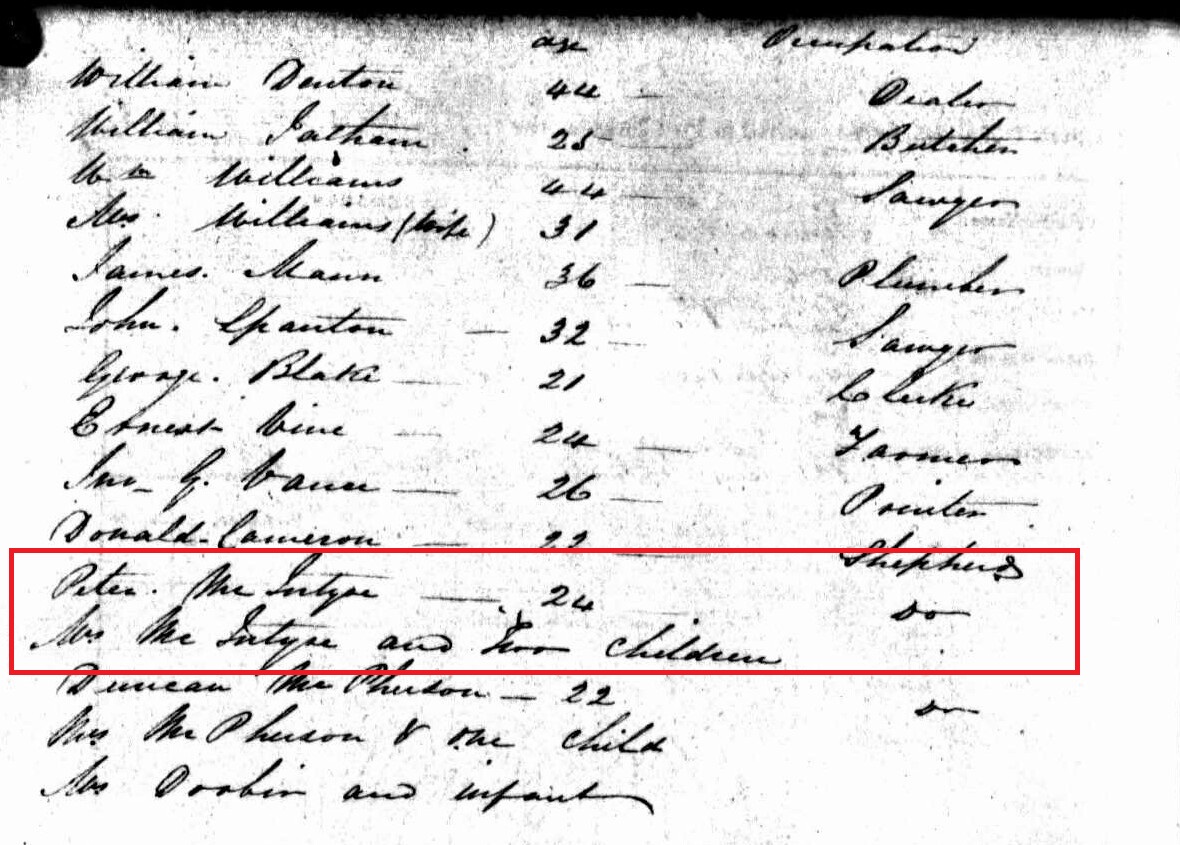 age Occupation
William Denton 44 — Dealer
William Latham . 25 — Butcher
Wm Williams 44 — Sawyer
Mrs Williams (Wife) 31
James. Mann 36 — Plumber
John. Spanton — 32 — Sawyer
George. Blake — 21 Clerk
Ernest Vine — 24 — Farmer
Jno G. Vance — 26 — Printer
Donald Cameron — 22 — Shepherd
Peter. McIntyre — 24 — Do
Mrs McIntyre and Two children
Duncan McPherson — 22 Do
Mrs McPherson & one child
Mrs Doobin and infant